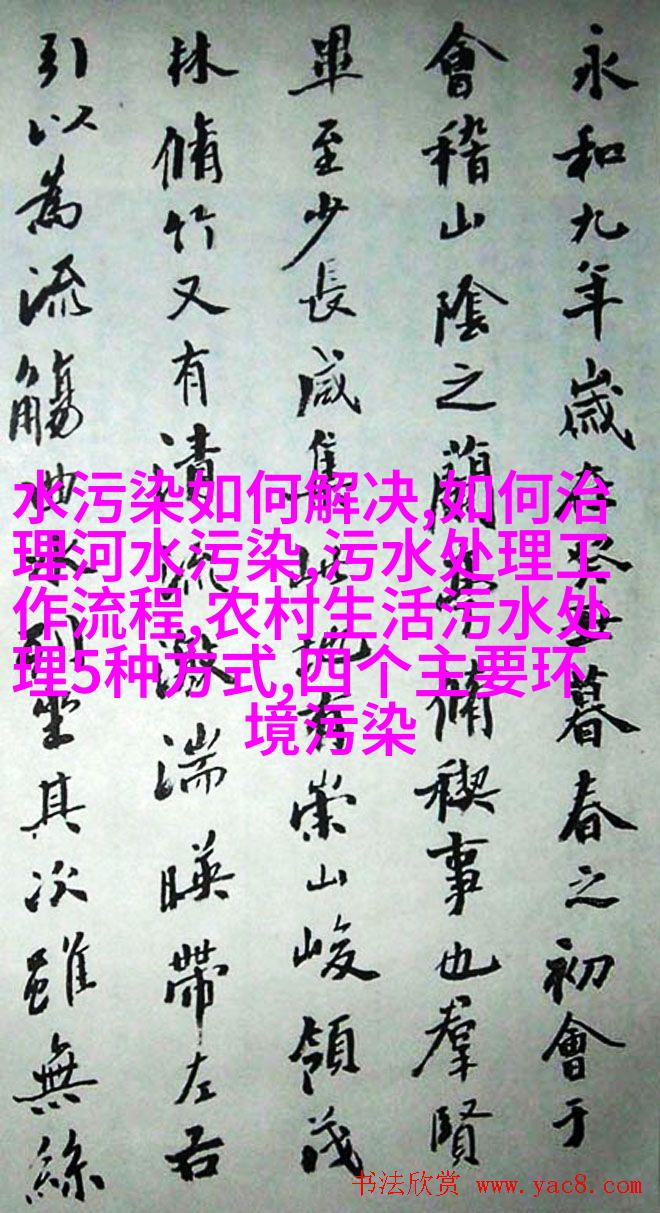 永和九年歲在癸丑暮春之初會于
會稽山陰之蘭亭脩稧事也羣賢
畢至少長咸集此地有崇山峻領茂
林脩竹又有清流激湍暎帶左右
引以為流觴曲水列坐其次雖無絲
水污染如何解决,如何治
理河水污染,污水处理工
作流程,农村生活污水处
理5种方式,四个主要环
境污染
书法欣赏 www.yac8.com